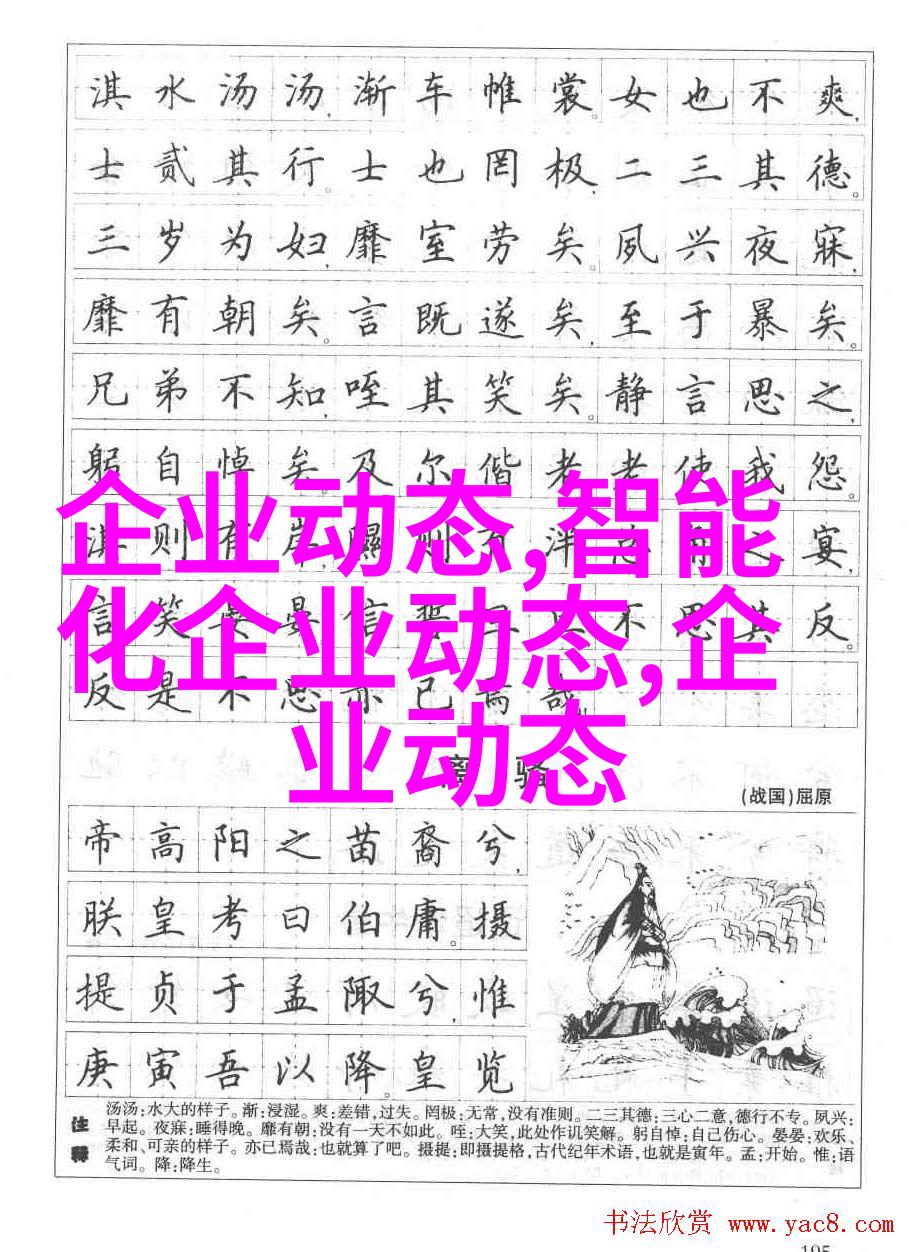 淇水汤汤,渐车帷裳。女也不爽,
士贰其行。士也罔极,二三其德。
三岁为妇,靡室劳矣。夙兴夜寐,
靡有朝矣。言既遂矣,至于暴矣。
兄弟不知,咥其笑矣。静言思之,
躬自悼矣。及尔偕老,老使我怨。
淇则有岸,隰则有泮。总角之宴,
言笑晏晏。信誓旦旦,不思其反。
反是不思,亦已焉哉!
企业动态,智能
化企业动态,企
业动态
离骚
(战国)屈原
帝高阳之苗裔兮,
朕皇考曰伯庸。摄
提贞于孟陬兮,惟
庚寅吾以降。皇览
注释
汤汤:水大的样子。渐:浸湿。爽:差错,过失。罔极:无常,没有准则。二三其德:三心二意,德行不专。夙兴:
早起。夜寐:睡得晚。靡有朝:没有一天不如此。咥:大笑,此处作讥笑解。躬自悼:自己伤心。晏晏:欢乐、
柔和、可亲的样子。亦已焉哉:也就算了吧。摄提:即摄提格,古代纪年术语,也就是寅年。孟:开始。惟:语
气词。降:降生。
书法欣赏 www.yac8.com
195